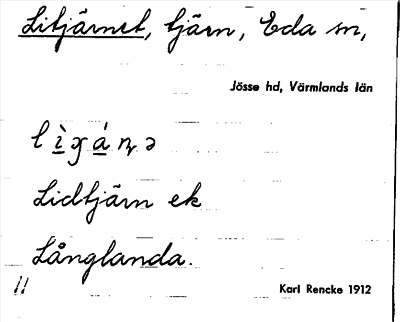 Litjärnet, tjärn, Eda sn,
Jösse hd, Värmlands län
Lidtjärn ek
Långlanda.
Karl Rencke 1912